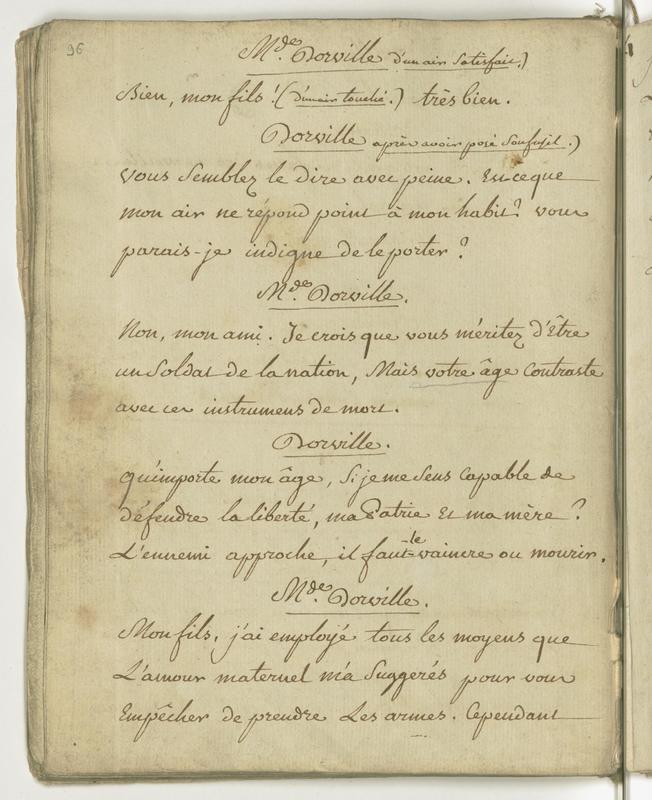 96
Mde. Dorville d'un air satisfait.)
Bien, mon fils! (d'un air touché.) très bien.
Dorville après avoir posé son fusil.)
Vous semblez le dire avec peine. Est-ce que
mon air ne répond point à mon habit? vous
parais-je indigne de le porter?
Mde. Dorville.
Non, mon ami. Je crois que vous méritez d'Être
un soldat de la nation, Mais votre âge contraste
avec ces instrumens de mort.
Dorville.
qu'importe mon âge, si je me sens capable de
défendre la liberté, ma Patrie Et ma mère?
L'ennemi approche, il faut le vaincre ou mourir.
Mde. Dorville.
Mon fils, j'ai employé tous les moyens que
L'amour maternel m'a suggerés pour vous
Empêcher de prendre Les armes. Cependant